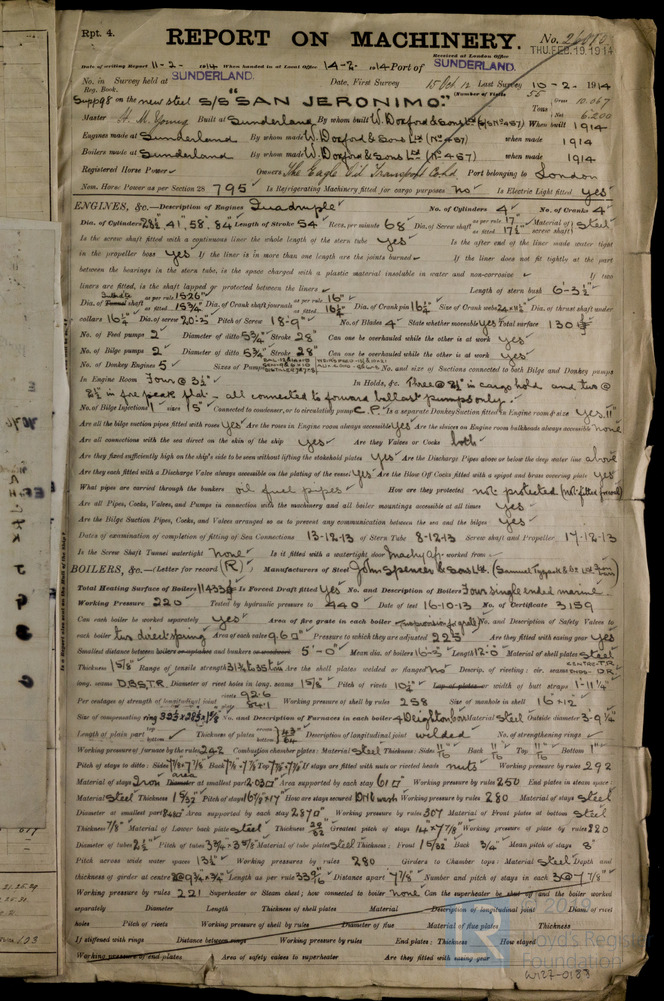 Rpt. 4.
REPORT ON MACHINERY.
No.
THU. FEB. 19. 1914
Received at London Office
Date of writing Report 11-2-1914 When handed in at Local Office 14-2-1914 Port of SUNDERLAND.
No. in Survey held at SUNDERLAND Date, First Survey 15 Oct. 12 Last Survey 10-2-1914
Reg. Book. (Number of Visits 55
on the new steel S/S "SAN JERONIMO." Tons Gross 10.067 Net 6.200
Master H. M. Young Built at Sunderland By whom built W. Doxford & Sons Ltd When built 1914
Engines made at Sunderland By whom made W. Doxford & Sons Ltd (No 457) when made 1914
Boilers made at Sunderland By whom made W. Doxford & Sons Ltd (No 457) when made 1914
Registered Horse Power Owners The Eagle Oil Transport Co Ltd Port belonging to London
Nom. Horse Power as per Section 28 795 Is Refrigerating Machinery fitted for cargo purposes no Is Electric Light fitted yes
ENGINES, &c.—Description of Engines Quadruple No. of Cylinders 4 No. of Cranks 4
Dia. of Cylinders 28½, 41, 58, 84 Length of Stroke 54 Revs. per minute 68 Dia. of Screw shaft as per rule 17 as fitted 17½ Material of screw shaft steel
Is the screw shaft fitted with a continuous liner the whole length of the stern tube yes Is the after end of the liner made water tight
in the propeller boss yes If the liner is in more than one length are the joints burned If the liner does not fit tightly at the part
between the bearings in the stern tube, is the space charged with a plastic material insoluble in water and non-corrosive If two
liners are fitted, is the shaft lapped or protected between the liners Length of stern bush 6'-3½"
Dia. of shaft as per rule 15.26" as fitted 15¾ Dia. of Crank shaft journals as per rule 16" as fitted 16¼ Dia. of Crank pin 16¼ Size of Crank webs Dia. of thrust shaft under
collars 16¼ Dia. of screw 20'-3" Pitch of Screw 18'-9" No. of Blades 4 State whether moveable yes Total surface 130
No. of Feed pumps 2 Diameter of ditto 5¾ Stroke 28" Can one be overhauled while the other is at work yes
No. of Bilge pumps 2 Diameter of ditto 5¾ Stroke 28" Can one be overhauled while the other is at work yes
No. of Donkey Engines 5 Sizes of Pumps No. and size of Suctions connected to both Bilge and Donkey pumps
In Engine Room Four @ 3½" In Holds, &c. Three @ in cargo hold and two @
in fore peak flat - all connected to forward ballast pumps only.
No. of Bilge Injections 1 sizes 15" Connected to condenser, or to circulating pump C.P. Is a separate Donkey Suction fitted in Engine room & size yes 11"
Are all the bilge suction pipes fitted with roses yes Are the roses in Engine room always accessible yes Are the sluices on Engine room bulkheads always accessible none
Are all connections with the sea direct on the skin of the ship yes Are they Valves or Cocks both
Are they fixed sufficiently high on the ship's side to be seen without lifting the stokehold plates yes Are the Discharge Pipes above or below the deep water line above
Are they each fitted with a Discharge Valve always accessible on the plating of the vessel yes Are the Blow Off Cocks fitted with a spigot and brass covering plate yes
What pipes are carried through the bunkers oil fuel pipes How are they protected not protected
Are all Pipes, Cocks, Valves, and Pumps in connection with the machinery and all boiler mountings accessible at all times yes
Are the Bilge Suction Pipes, Cocks, and Valves arranged so as to prevent any communication between the sea and the bilges yes
Dates of examination of completion of fitting of Sea Connections 13-12-13 of Stern Tube 8-12-13 Screw shaft and Propeller 17-12-13
Is the Screw Shaft Tunnel watertight none Is it fitted with a watertight door mach'y aft worked from
BOILERS, &c.—(Letter for record (R)) Manufacturers of Steel John Spencer & Sons Ltd.
Total Heating Surface of Boilers 11433 Is Forced Draft fitted yes No. and Description of Boilers Four single ended marine
Working Pressure 220 Tested by hydraulic pressure to 440 Date of test 16-10-13 No. of Certificate 3159
Can each boiler be worked separately yes Area of fire grate in each boiler No. and Description of Safety Valves to
each boiler two direct spring Area of each valve 9.6 Pressure to which they are adjusted 225 Are they fitted with easing gear yes
Smallest distance between boilers or uptakes and bunkers 5'-0" Mean dia. of boilers 16'-3" Length 12'-0 Material of shell plates steel
Thickness 1 5/8 Range of tensile strength Are the shell plates welded or flanged no Descrip. of riveting: cir. seams
long. seams D.B.S.T.R. Diameter of rivet holes in long. seams 1 5/8" Pitch of rivets 10¾ Lap of plates or width of butt straps 1'-11¼"
Per centages of strength of longitudinal joint rivets 92.6 plate 84.1 Working pressure of shell by rules 258 Size of manhole in shell 16 × 12
Size of compensating ring No. and Description of Furnaces in each boiler 4 Deighton Material steel Outside diameter 3'-9¼
Length of plain part top bottom Thickness of plates crown bottom 43/64 Description of longitudinal joint welded No. of strengthening rings
Working pressure of furnace by the rules 242 Combustion chamber plates: Material steel Thickness: Sides 11/16 Back 11/16 Top 11/16 Bottom 1"
Pitch of stays to ditto: Sides Back Top If stays are fitted with nuts or riveted heads nuts Working pressure by rules 292
Material of stays Iron Diameter at smallest part 2.03 Area supported by each stay 61 Working pressure by rules 250 End plates in steam space:
Material steel Thickness 1 5/32 Pitch of stays How are stays secured Working pressure by rules 280 Material of stays steel
Diameter at smallest part Area supported by each stay 287 Working pressure by rules 307 Material of Front plates at bottom steel
Thickness 7/8" Material of Lower back plate steel Thickness 29/32 Greatest pitch of stays 14 × 7 7/8" Working pressure of plate by rules
Diameter of tubes 2½ Pitch of tubes Material of tube plates steel Thickness: Front 15/32 Back 3/4" Mean pitch of stays 8"
Pitch across wide water spaces 13½" Working pressures by rules 280 Girders to Chamber tops: Material steel Depth and
thickness of girder at centre Length as per rule Distance apart 7 7/8" Number and pitch of stays in each 3 @ 7 7/8"
Working pressure by rules 221 Superheater or Steam chest; how connected to boiler none Can the superheater be shut off and the boiler worked
separately Diameter Length Thickness of shell plates Material Description of longitudinal joint Diam. of rivet
holes Pitch of rivets Working pressure of shell by rules Diameter of flue Material of flue plates Thickness
If stiffened with rings Distance between rings Working pressure by rules End plates: Thickness How stayed
Working pressure of end plates Area of safety valves to superheater Are they fitted with easing gear
© 2019
Lloyd's Register
Foundation
W127-0187